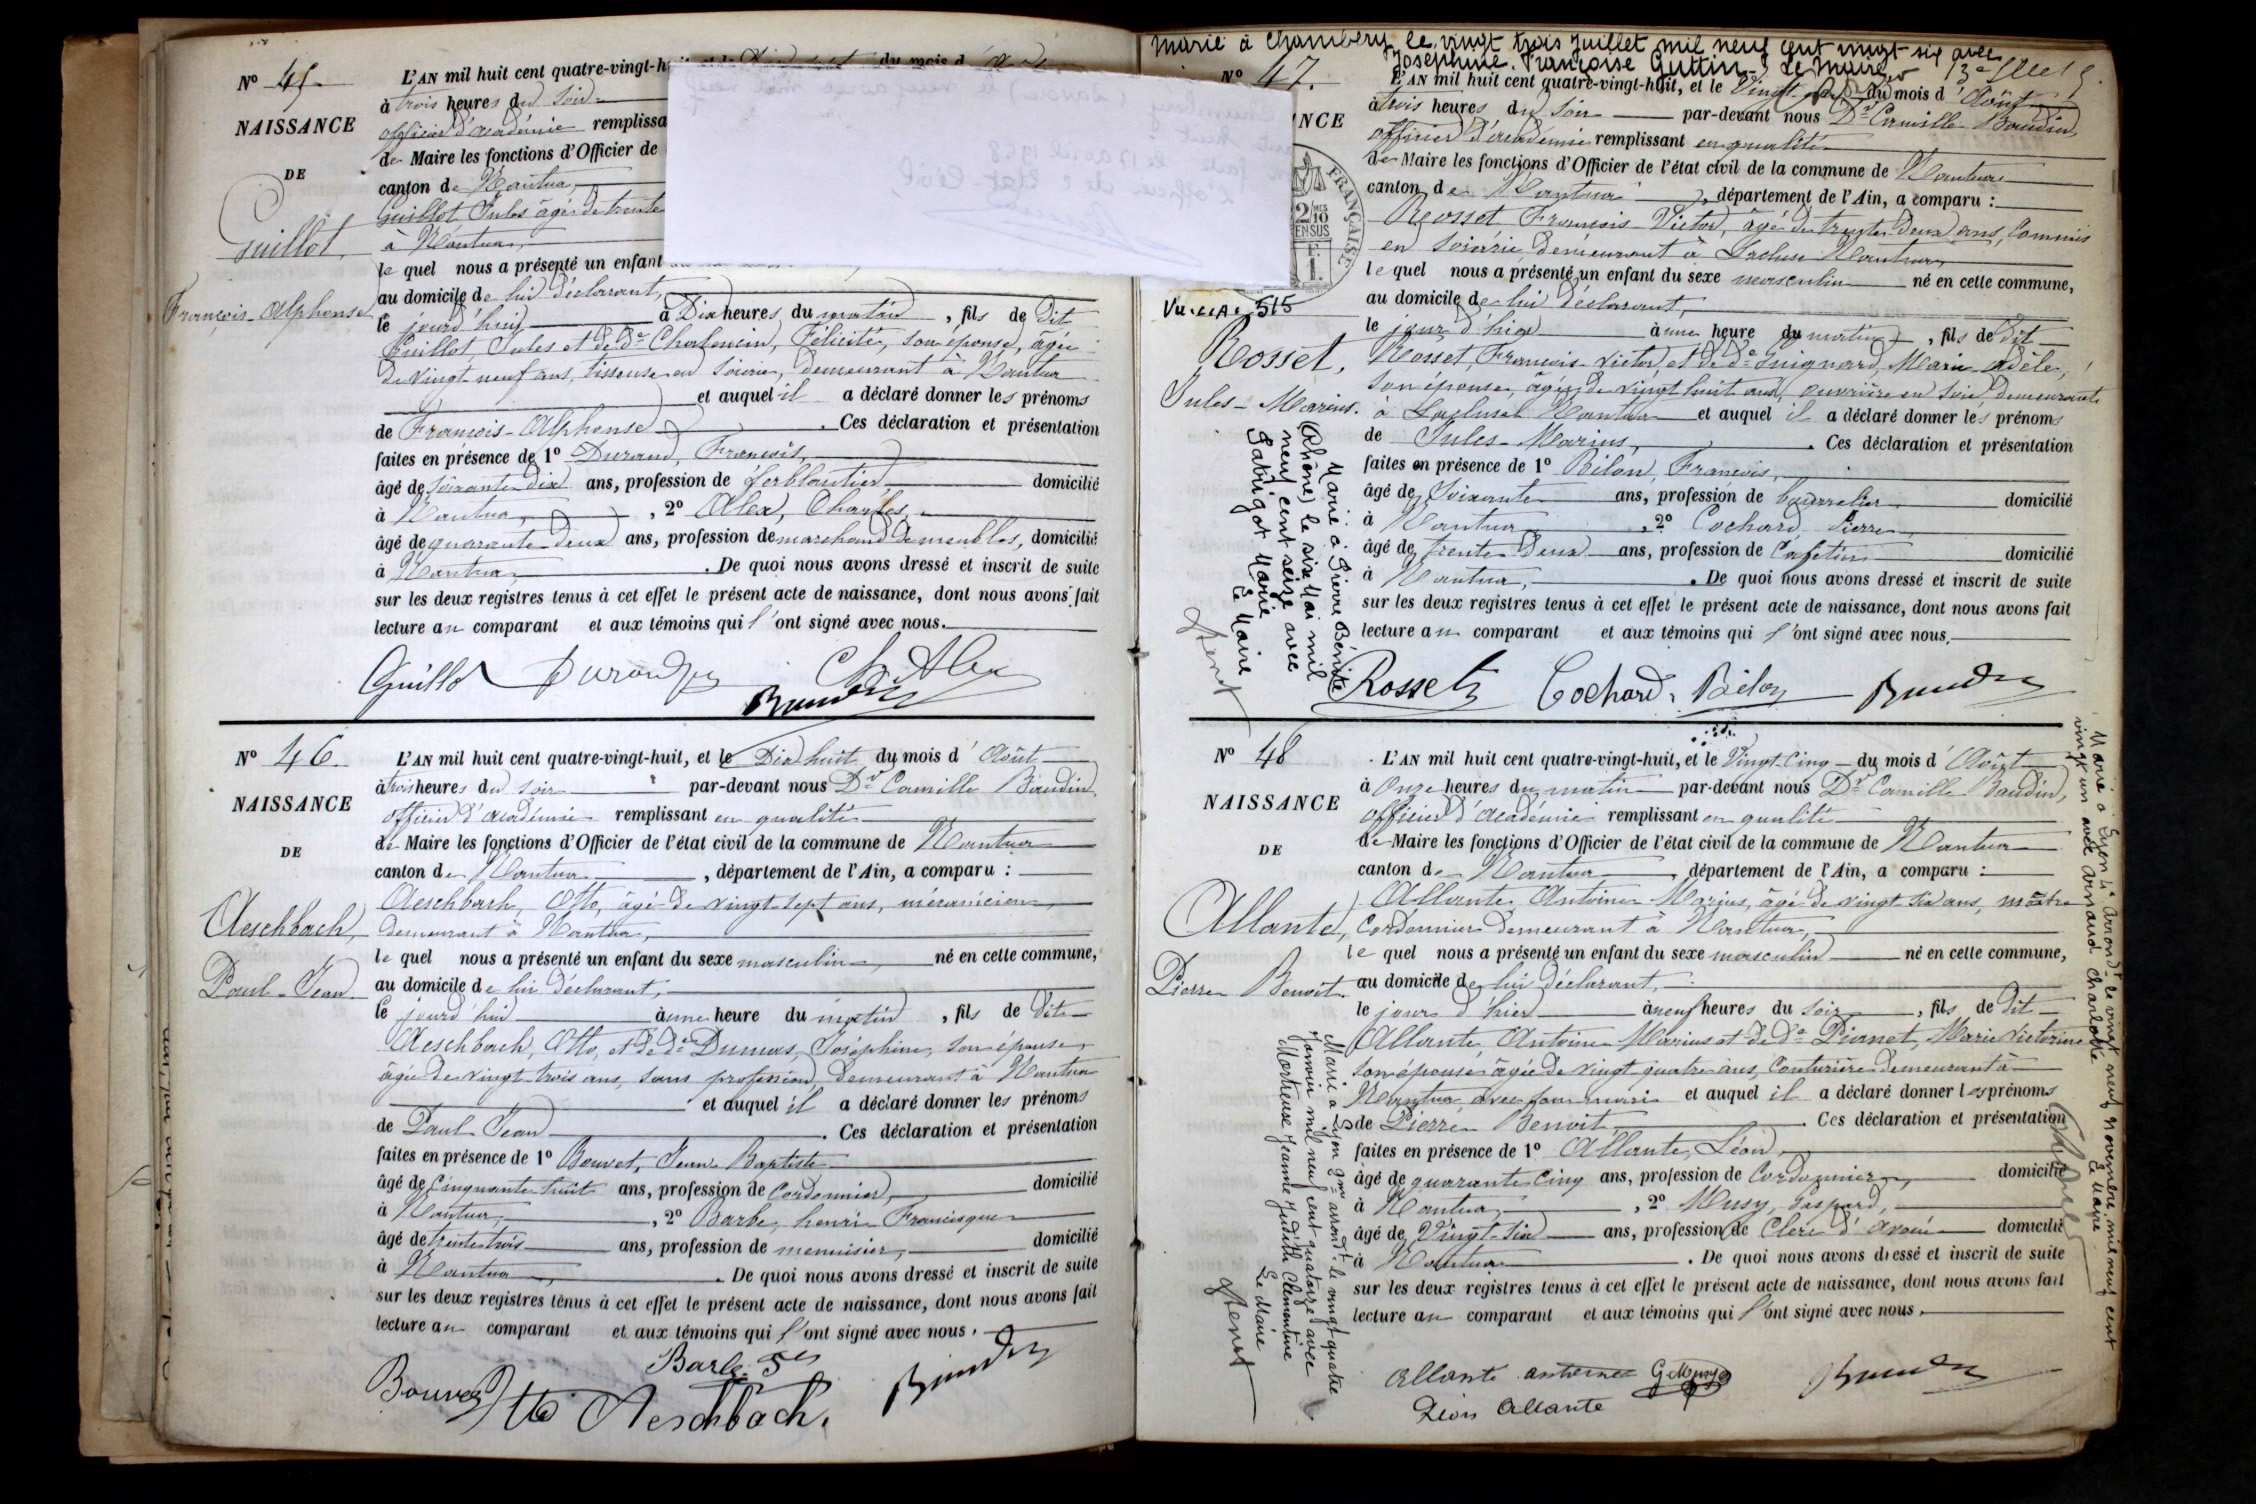 Nº 45
NAISSANCE
DE
Guillot,
François-Alphonse
L'AN mil huit cent quatre-vingt-huit
à trois heures du soir
officier d'académie remplissa
de Maire les fonctions d'Officier de
canton de Nantua,
Guillot Jules âgé de trente
à Nantua,
le quel nous a présenté un enfant
au domicile de lui déclarant,
le jourd'hui à Dix heures du matin, fils de dit
Guillot, Jules et de de Félicité, son épouse, âgée
de vingt neuf ans, tisseuse en soierie, demeurant à Nantua
et auquel il a déclaré donner les prénoms
de François-Alphonse. Ces déclaration et présentation
faites en présence de 1º Durand, François,
âgé de soixante dix ans, profession de ferblantier domicilié
à Nantua, , 2º Alex, Charles,
âgé de quarante deux ans, profession de marchand de meubles, domicilié
à Nantua, . De quoi nous avons dressé et inscrit de suite
sur les deux registres tenus à cet effet le présent acte de naissance, dont nous avons fait
lecture au comparant et aux témoins qui l'ont signé avec nous.
Guillot Durand Ch Alex
Baudin
Nº 46.
NAISSANCE
DE
Aeschbach,
Paul-Jean
L'AN mil huit cent quatre-vingt-huit, et le Dix huit du mois d'Août
à trois heures du soir par-devant nous Dr Camille Baudin,
officier d'académie remplissant en qualité
de Maire les fonctions d'Officier de l'état civil de la commune de Nantua
canton de Nantua, département de l'Ain, a comparu :
Aeschbach, Otto, âgé de vingt sept ans, mécanicien
demeurant à Nantua,
le quel nous a présenté un enfant du sexe masculin né en cette commune,
au domicile de lui déclarant,
le jourd'hui à une heure du matin, fils de dit
Aeschbach, Otto, et de de Dumas, Joséphine, son épouse,
âgée de vingt trois ans, sans profession, demeurant à Nantua
et auquel il a déclaré donner les prénoms
de Paul Jean. Ces déclaration et présentation
faites en présence de 1º Bouvet, Jean Baptiste
âgé de Cinquante huit ans, profession de Cordonnier, domicilié
à Nantua, , 2º Barbe, henri Francisque
âgé de trente trois ans, profession de menuisier, domicilié
à Nantua, . De quoi nous avons dressé et inscrit de suite
sur les deux registres tenus à cet effet le présent acte de naissance, dont nous avons fait
lecture au comparant et aux témoins qui l'ont signé avec nous.
Barbe
Bouvet Otto Aeschbach. Baudin
Marié à Chambéry le vingt trois juillet mil neuf cent vingt-six avec
Joséphine Françoise Guttin Le Maire
Nº 47.
NCE
FRANÇAISE
Rosset,
Jules-Marius.
L'AN mil huit cent quatre-vingt-huit, et le Vingt du mois d'Août
à trois heures du soir par-devant nous Dr Camille Baudin
officier d'académie remplissant en qualité
de Maire les fonctions d'Officier de l'état civil de la commune de Nantua
canton de Nantua, département de l'Ain, a comparu :
Rosset François-Victor, âgé de trente deux ans, Commis
en soierie, demeurant à Nantua,
le quel nous a présenté un enfant du sexe masculin né en cette commune,
au domicile de lui déclarant,
le jour d'hier à une heure du matin, fils de dit
Rosset, François-Victor, et de de Guignard, Marie Adèle,
son épouse, âgée de vingt huit ans, ouvrière en soie, demeurante
à Nantua et auquel il a déclaré donner les prénoms
de Jules-Marius, . Ces déclaration et présentation
faites en présence de 1º Bilon, François,
âgé de Soixante ans, profession de bourrelier domicilié
à Nantua, 2º Cochard, Pierre
âgé de trente deux ans, profession de Cafetier domicilié
à Nantua, . De quoi nous avons dressé et inscrit de suite
sur les deux registres tenus à cet effet le présent acte de naissance, dont nous avons fait
lecture au comparant et aux témoins qui l'ont signé avec nous.
Marié à Pierre Bénite
(Rhône) le six Mai mil
neuf cent seize avec
Le Maire
Rosset Cochard Bilon Baudin
Nº 48
NAISSANCE
DE
Allante,
Pierre Benoit
L'AN mil huit cent quatre-vingt-huit, et le Vingt-Cinq du mois d'Août
à Onze heures du matin par-devant nous Dr Camille Baudin,
officier d'académie remplissant en qualité
de Maire les fonctions d'Officier de l'état civil de la commune de Nantua
canton de Nantua, département de l'Ain, a comparu :
Allante, Antoine Marius, âgé de vingt six ans, maître
Cordonnier demeurant à Nantua,
le quel nous a présenté un enfant du sexe masculin né en cette commune,
au domicile de lui déclarant,
le jour d'hier à neuf heures du soir, fils de dit
Allante, Antoine Marius et de de Pianet, Marie Victorine
son épouse âgée de vingt quatre ans, Couturière demeurant à
Nantua avec son mari et auquel il a déclaré donner les prénoms
de Pierre Benoit, . Ces déclaration et présentation
faites en présence de 1º Allante, Léon,
âgé de quarante cinq ans, profession de Cordonnier, domicilié
à Nantua, , 2º Musy, Gaspard,
âgé de Vingt-six ans, profession de Clerc d'avoué domicilié
à Nantua . De quoi nous avons dressé et inscrit de suite
sur les deux registres tenus à cet effet le présent acte de naissance, dont nous avons fait
lecture au comparant et aux témoins qui l'ont signé avec nous.
Marié à Lyon 3me arrondt le vingt quatre
Janvier mil neuf cent quatorze avec
Jeanne Judith Clémentine
Le Maire
Marié à Lyon 4e arrondt le vingt neuf Novembre mil neuf cent
vingt un avec Arnaud Charlotte
Le Maire
Allante antoine G Musy Baudin
Léon Allante